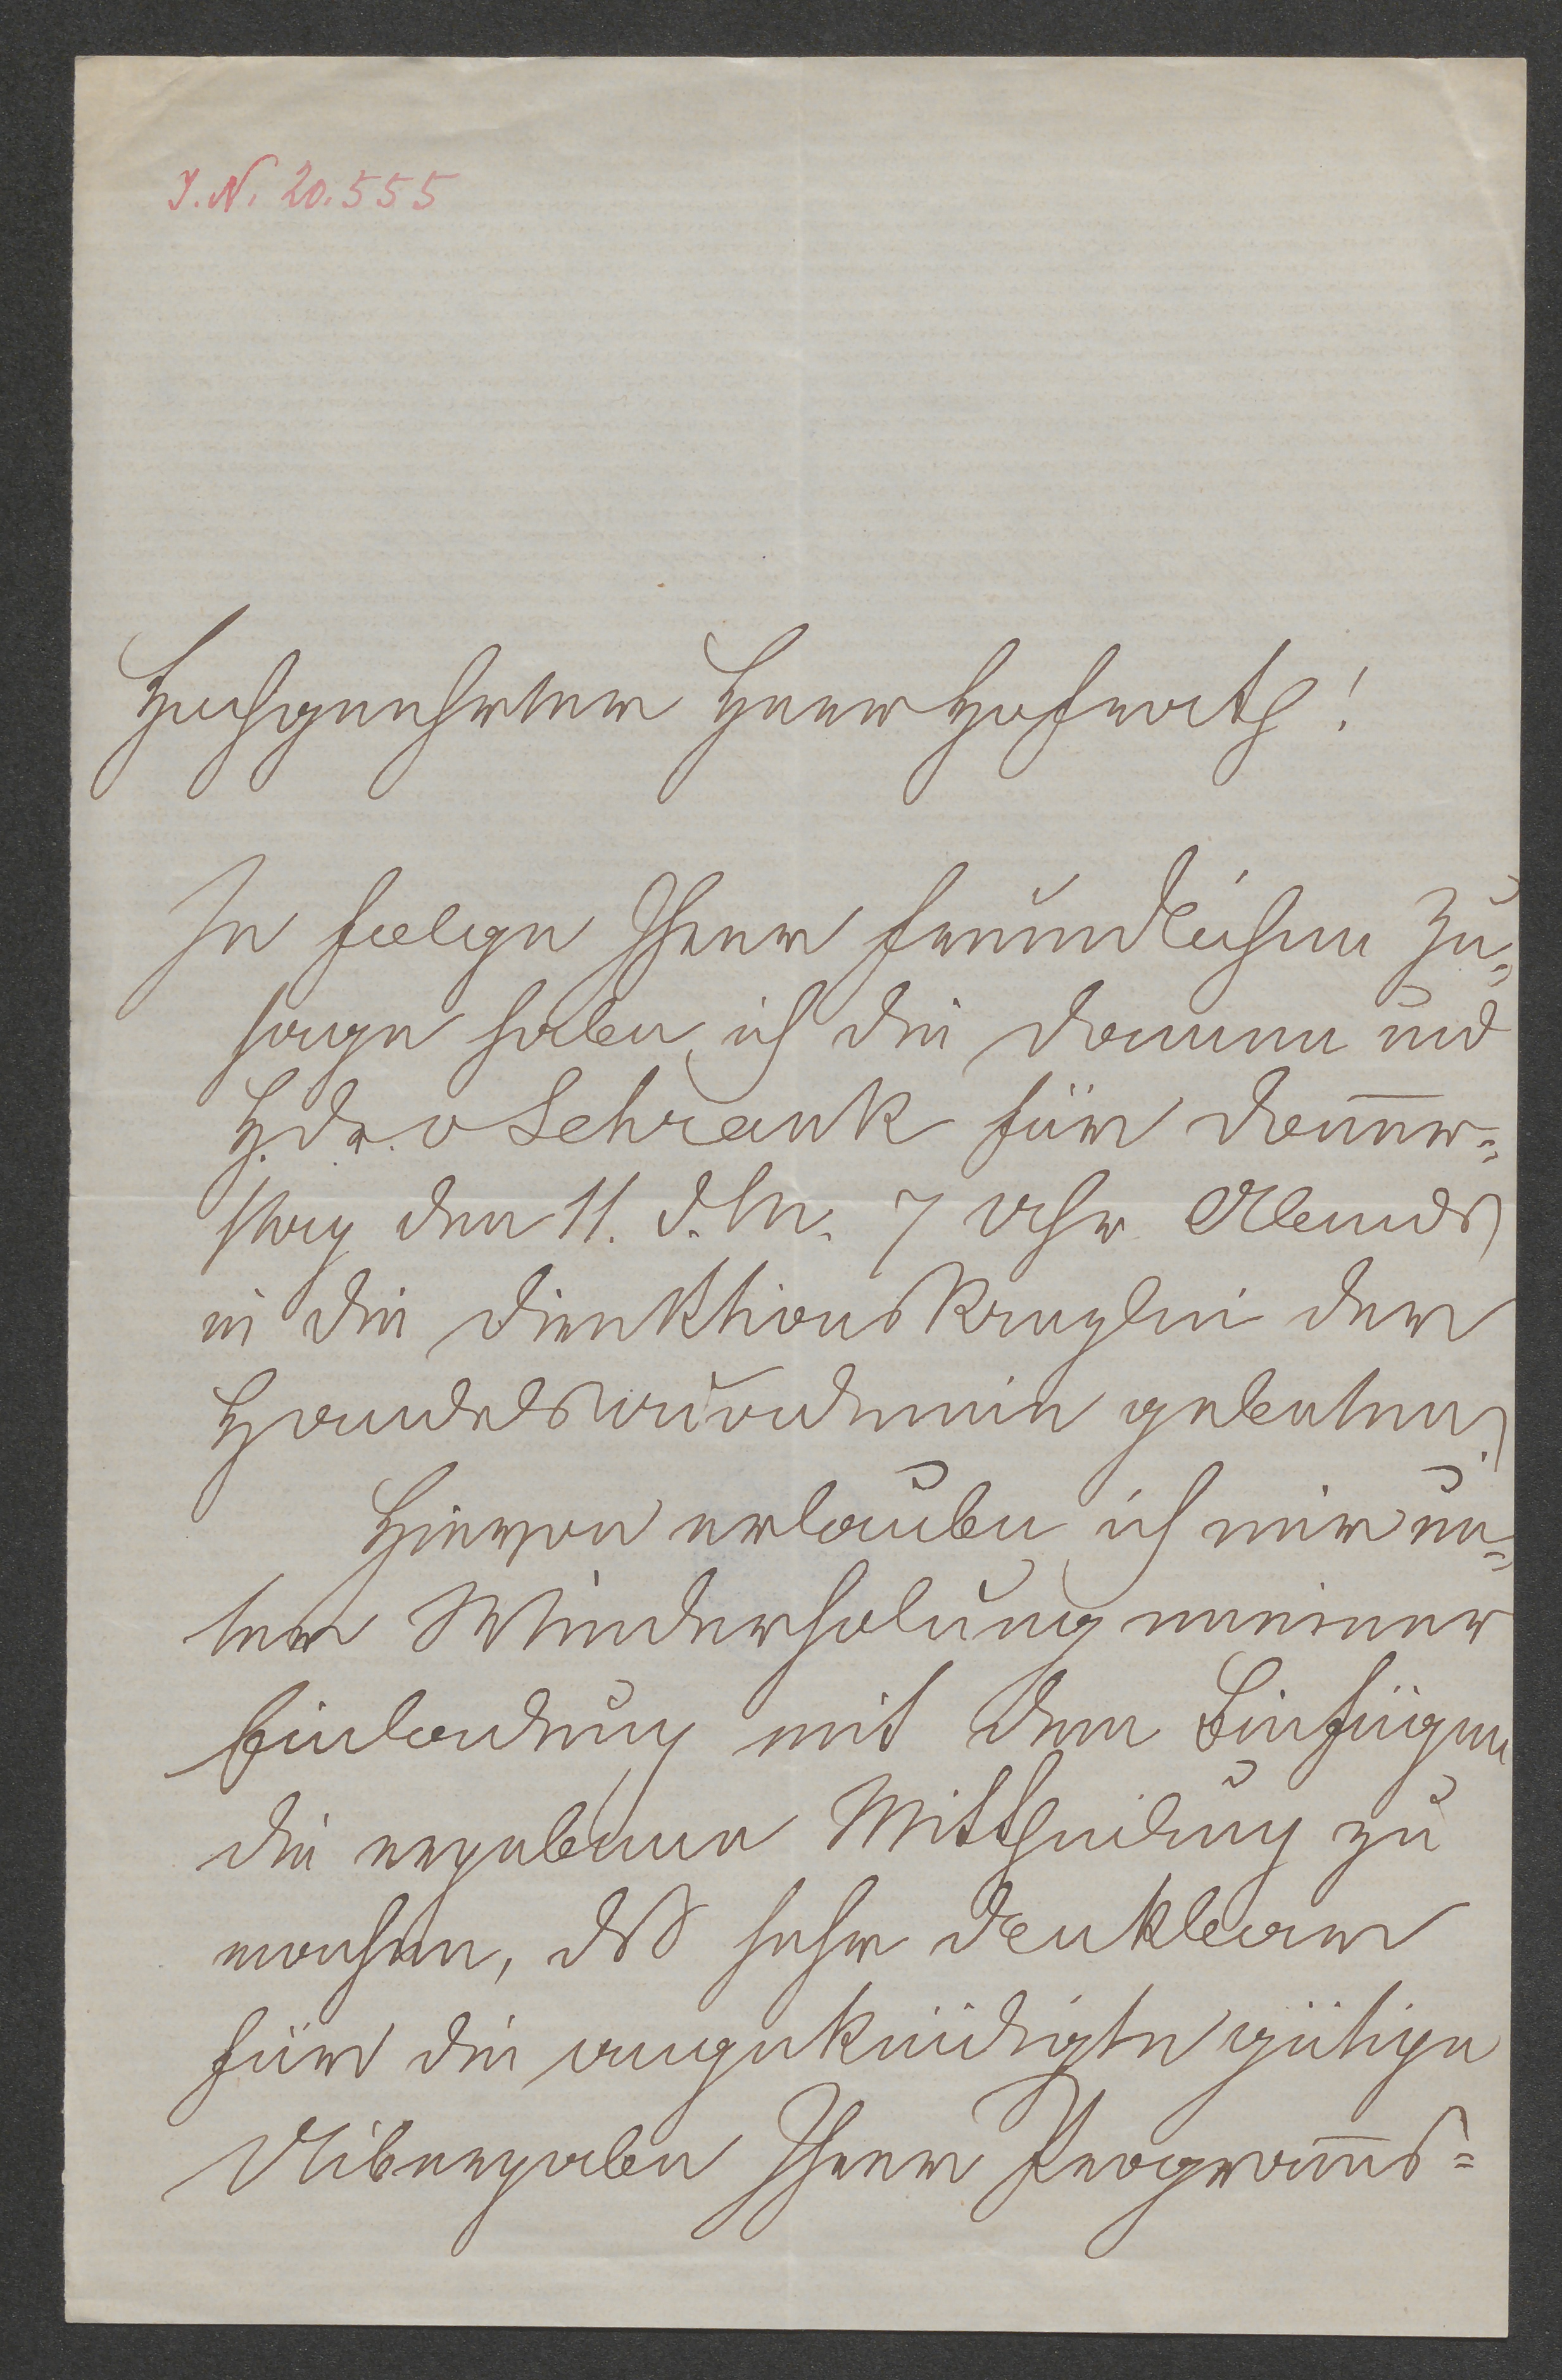 J. N. 20.555
Hochgeehrter Herr Hofrath!
In Folge Ihrer freundlichen Zu-
sage habe ich die Damen und
H. Dr. v Schrank für Doners-
stag den 11. d. M. 7 Uhr Abends
in die Direktionskanzlei der
Handelsacademie gebeten.
Hievon erlaube ich mir un-
ter Wiederholung meiner
Einladung mit dem Beifügen
die ergebene Mittheilung zu
machen, daß sehr dankbar
für die angekündigte gütige
Uibergabe Ihrer Program̅s-